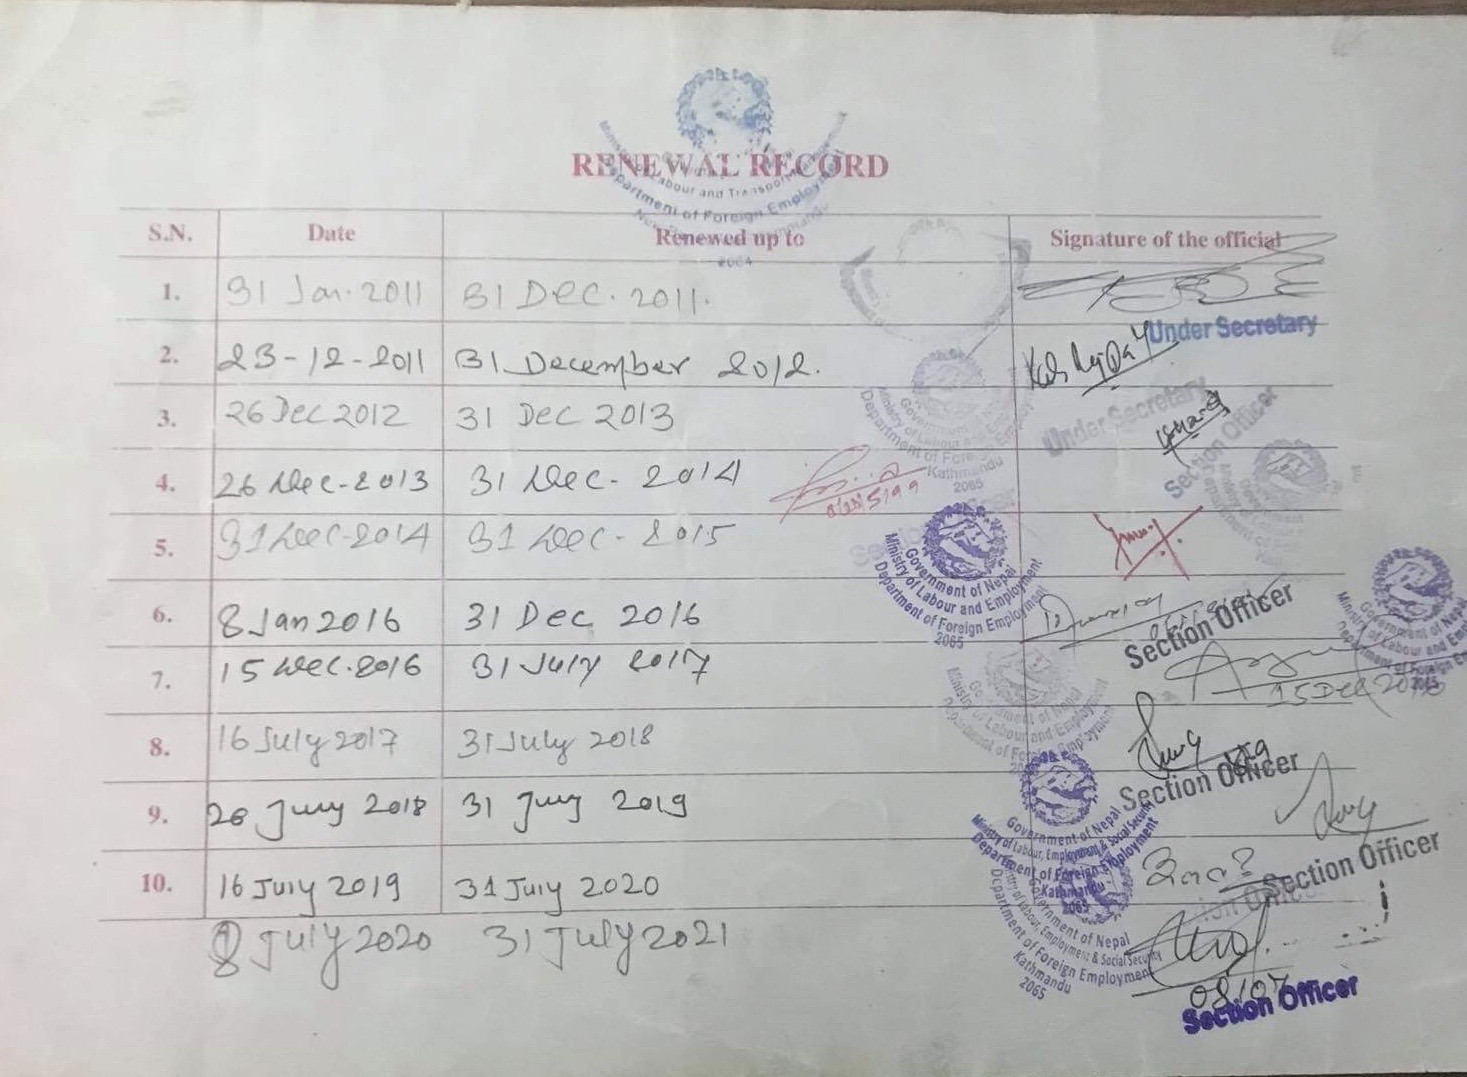 RENEWAL RECORD
Labour and Transport
Department of Foreign Employ
S.N. Date Renewed up to Signature of the official
1. 31 Jan. 2011 31 Dec. 2011.
Under Secretary
2. 23-12-2011 31 December 2012.
Under Secretary
3. 26 Dec 2012 31 Dec 2013
Section Officer
Kathmandu
2065
4. 26 Dec-2013 31 Dec- 2014
5. 31 Dec-2014 31 Dec- 2015
Government of Nepal
Ministry of Labour and Employment
Department of Foreign Employment
2065
6. 8 Jan 2016 31 Dec 2016
Section Officer
7. 15 Dec-2016 31 July 2017
15 Dec 2016
8. 16 July 2017 31 July 2018
Section Officer
9. 26 July 2018 31 July 2019
Government of Nepal
Ministry of Labour, Employment & Social Security
Department of Foreign Employment
Kathmandu
2065
Section Officer
10. 16 July 2019 31 July 2020
8 July 2020 31 July 2021
Government of Nepal
Ministry of Labour, Employment & Social Security
Department of Foreign Employment
Kathmandu
2065
08/07
Section Officer